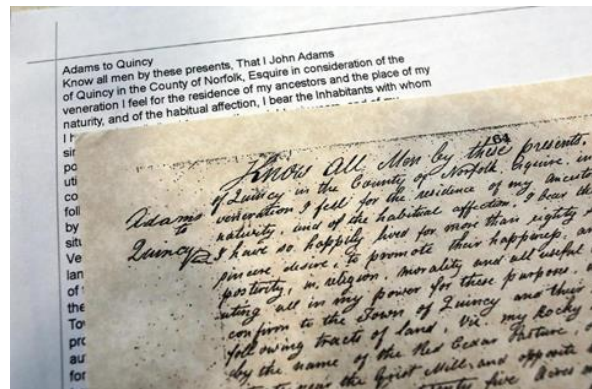 Adams to Quincy
Know all men by these presents, That I John Adams
of Quincy in the County of Norfolk, Esquire in consideration of the
veneration I feel for the residence of my ancestors and the place of my
naturity, and of the habitual affection, I bear the Inhabitants with whom
I
po
uti
co
foll
by
situ
Ve
lan
of
the
pro
for
164
Know All Men by these presents,
of Quincy in the County of Norfolk, Esquire, in
Adams veneration I fell for the residence of my
to naturity, and of the habitual affection, I bear the
Quincy I have so happily lived for more than eighty
sincere desire, to promote their happiness,
posterity, in, religion, morality and all useful
uting all in my power for these purposes,
confirm to the Town of Quincy and their
following tracts of land, Viz. my Rocky
by the name of the Red Cedar Pasture,
near the Grist Mill, and opposite
five Acres